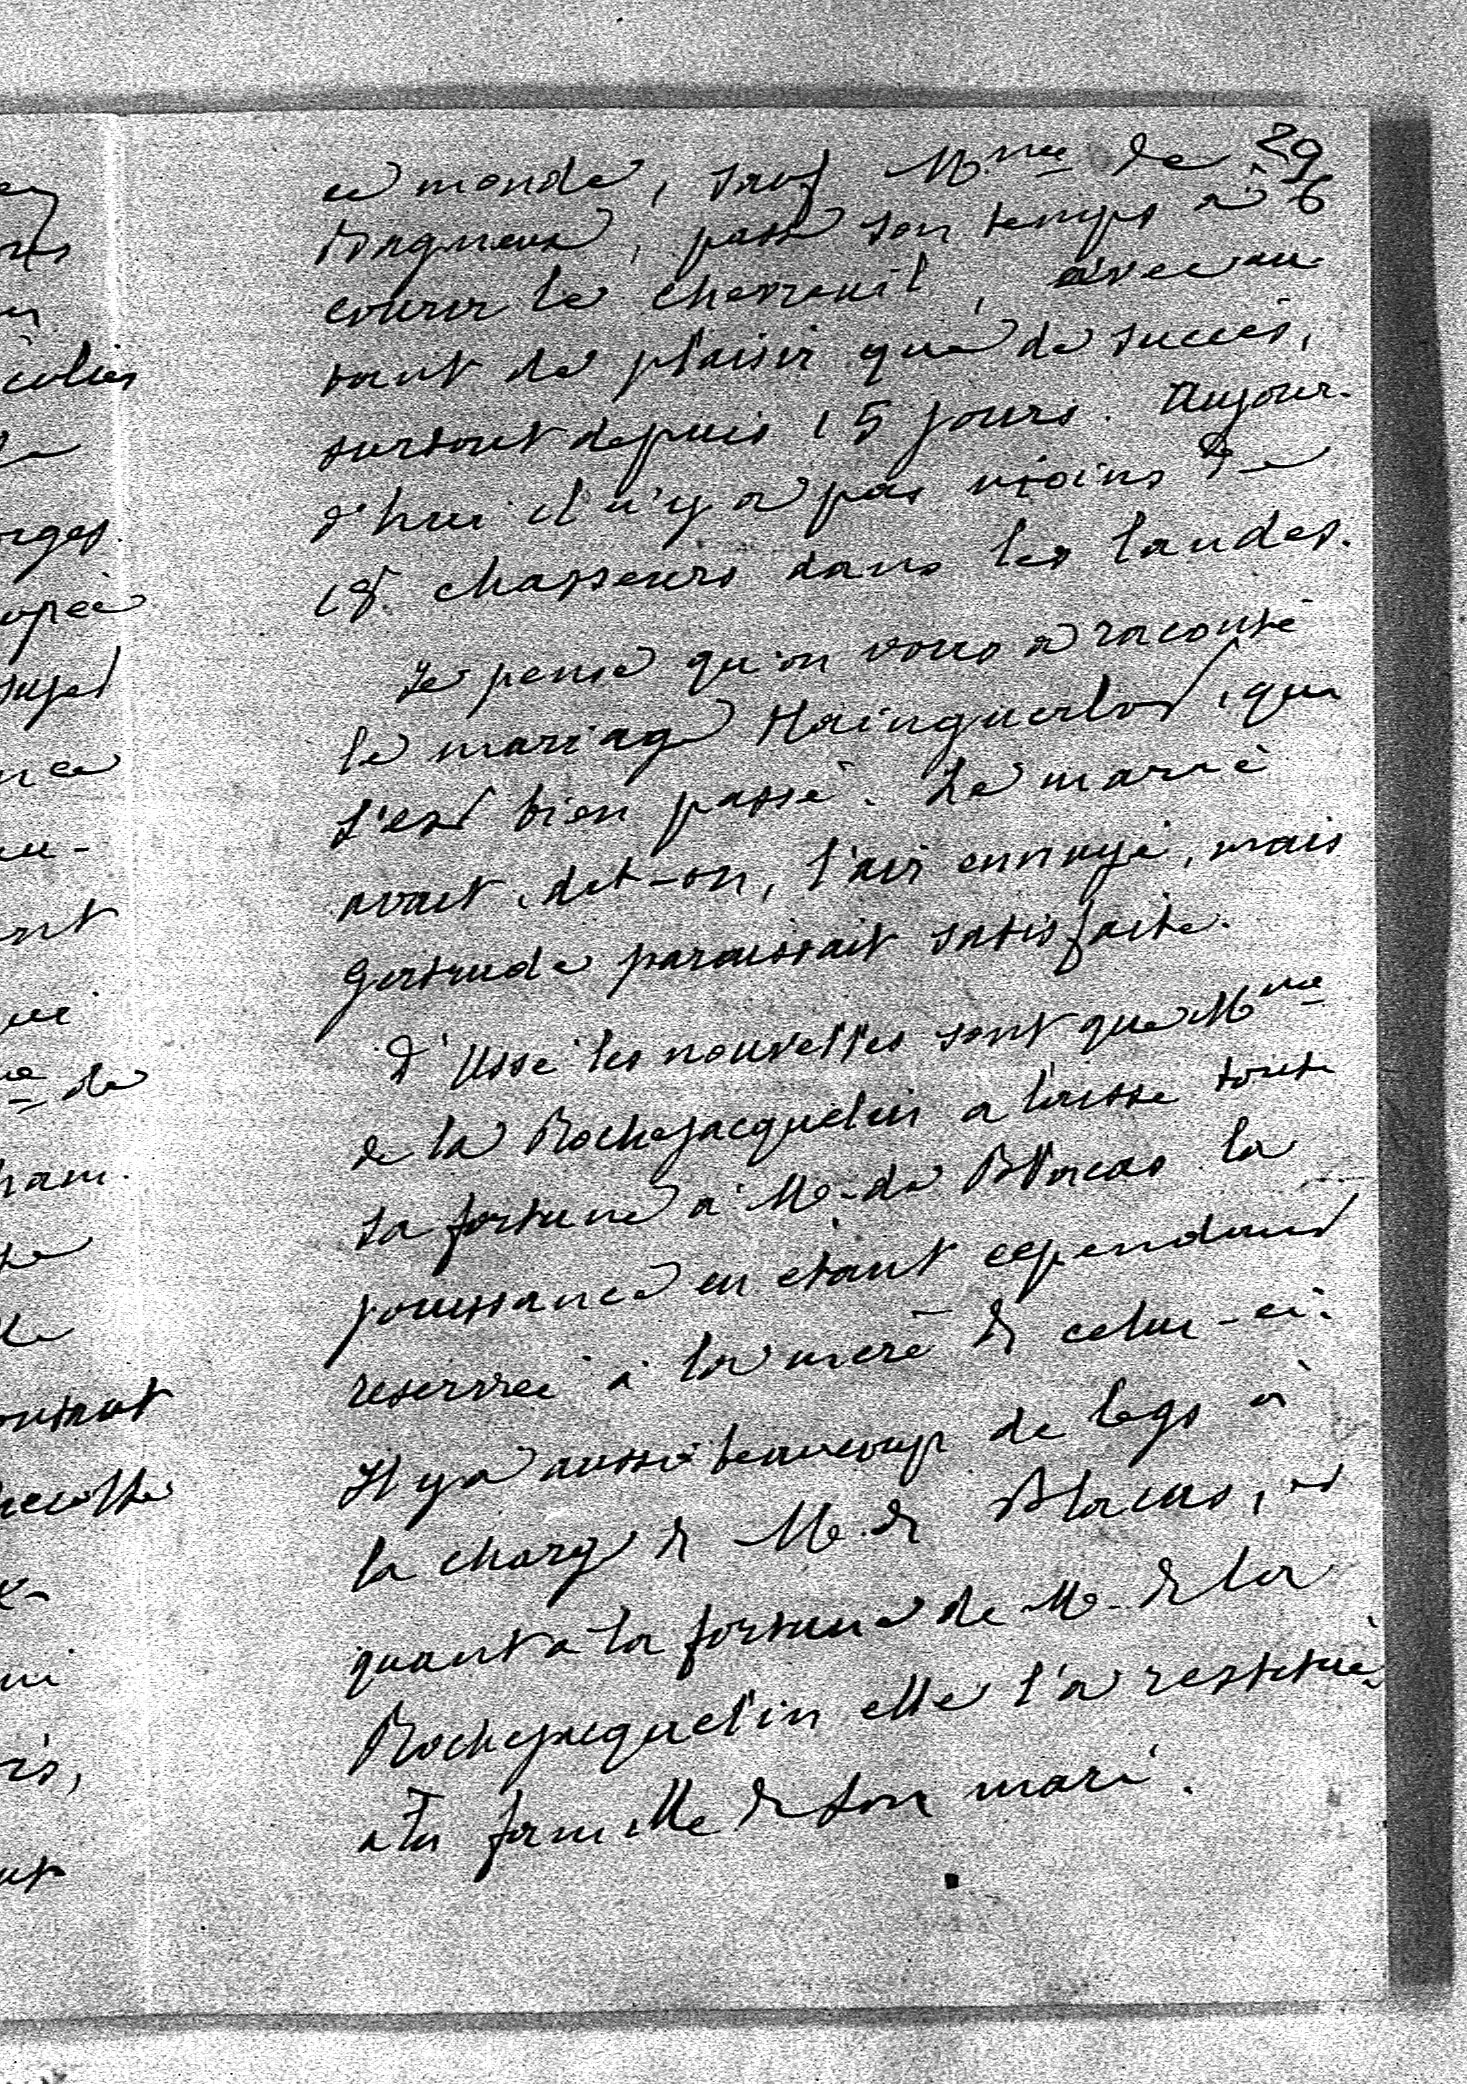 29
6
ce monde, sauf Mme de
Bagneux, passe son temps à
courir le chevreuil, avec au-
tant de plaisir que de succès,
surtout depuis 15 jours. Aujour-
d'hui il n'y a pas moins de
18 chasseurs dans les landes.
Je pense qu'on vous a raconté
le mariage Hainguerlot, qui
s'est bien passé. Le marié
avait, dit-on, l'air ennuyé, mais
Gertrude paraissait satisfaite.
D'Ussé les nouvelles sont que Mme
de la Rochejacquelin a laissé toute
sa fortune à M. de Blacas la
jouissance en étant cependant
reservée à la mère de celui-ci.
Il y a aussi beaucoup de legs à
la charge de M. de Blacas, et
quant a la fortune de M. de la
Rochejacquelin elle l'a restituée
a la famille de son mari.
culier
orges
opée
sujet
nce
au-
ont
qui
de
te